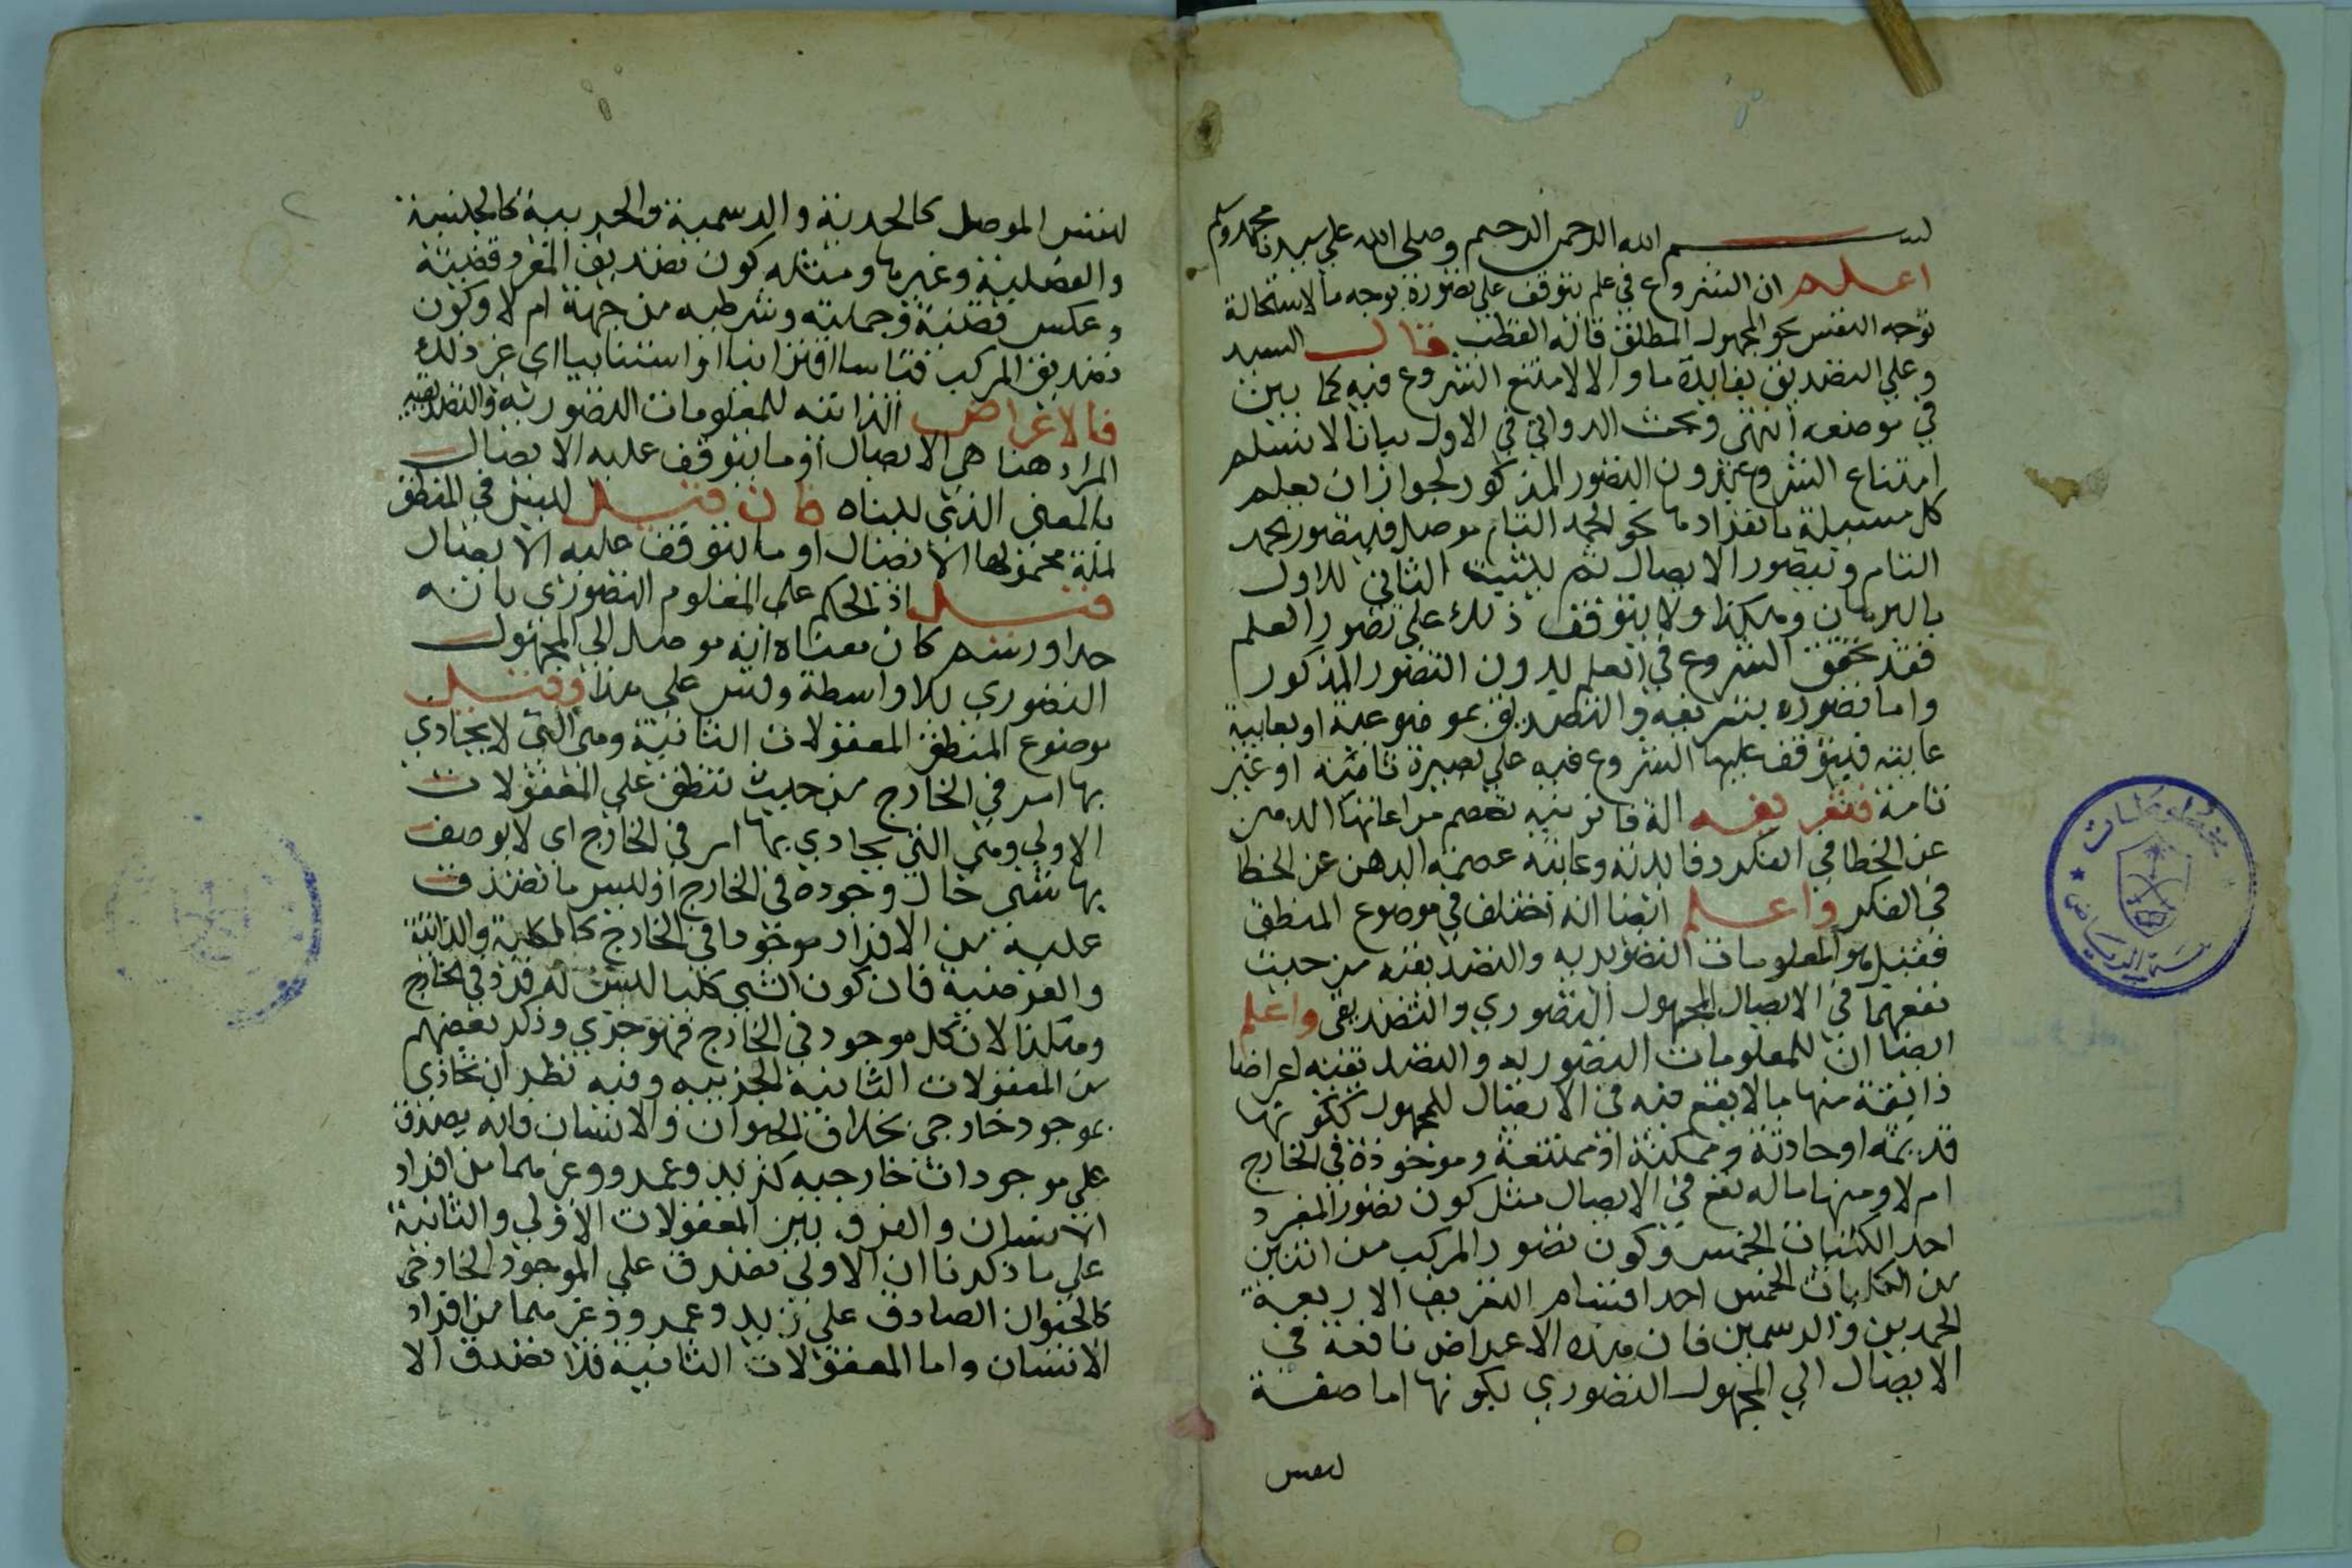 بسم الله الرحمن الرحيم وصلى الله على سيدنا محمد وسلم
اعلم ان الشروع في علم يتوقف على تصوره بوجه ما لاستحالة
توجه النفس نحو المجهول المطلق قاله القطب قال السيد
وعلى التصديق بفايدة ما والا لامتنع الشروع فيه كما بين
في موضعه انتهى وبحث الدواني في الاول بيانا لا نسلم
امتناع الشروع بدون التصور المذكور لجواز ان يعلم
كل مسيلة بانفرادها نحو الحد التام موصل فيتصور الحد
التام ويتصور الايصال ثم يثبت الثاني للاول
بالبرهان وهكذا ولا يتوقف ذلك على تصور العلم
فقد تحقق الشروع في العلم بدون التصور المذكور
واما تصوره بتعريفه والتصديق بموضوعية او بغايية
غايته فيتوقف عليها الشروع فيه على بصيرة تامة او غير
تامة فتعريفه الة قانونية تعصم مراعاتها الذهن
عن الخطا في الفكر وفايدته وغايته عصمة الذهن عن الخطا
في الفكر واعلم ايضا انه اختلف في موضوع المنطق
فقيل هو المعلومات التصورية والتصديقية من حيث
نفعهما في الايصال المجهول التصوري والتصديقي واعلم
ايضا ان للمعلومات التصورية والتصديقية اعراضا
ذاتية منها ما لا يقع فيه في الايصال للمجهول ككونها
قديمة او حادثة وممكنة او ممتنعة وموجودة في الخارج
ام لا ومنها ما له نفع في الايصال مثل كون تصور المفرد
احد الكليات الخمس وكون تصور المركب من اثنين
من الكليات الخمس احد اقسام التعريف الاربعة
الحدين والرسمين فان هذه الاعراض نافعة في
الايصال الى المجهول التصوري لكونها اما صفة
لنفس
لنفس الموصل كالحدية والرسمية والجزيية كالجنسية
والفصلية وغيرها ومثله كون تصديق المفرد قضية
وعكس قضية وحملية وشرطيه من جهة ام لا وكون
تصديق المركب قياسا اقترانيا او استثنائيا الى غير ذلك
فالاعراض الذاتيه للمعلومات التصورية والتصديقيه
المراد هنا هي الايصال او ما يتوقف عليه الايصال
بالمعنى الذي بيناه فان قيل ليس في المنطق
مسئلة محمولها الايصال او ما يتوقف عليه الايصال
قيل اذ الحكم على المعلوم التصوري بانه
حد او رسم كان معناه انه موصل الى المجهول
التصوري بلا واسطة وقس على هذا وقيل
موضوع المنطق المعقولات الثانية وهي التي لا يحاذي
بها امر في الخارج من حيث تنطبق على المعقولات
الاولى وهي التي يحاذي بها امر في الخارج اى لا يوصف
بها شي حال وجوده في الخارج او ليس ما تصدق
عليه من الافراد موجودا في الخارج كالكلية والذاتية
والعرضية فان كون الشي كليا ليس له فرد في الخارج
وهكذا لان كل موجود في الخارج فهو جزي وذكر بعضهم
من المعقولات الثانية الجزييه وفيه نظر ان تحاذي
بموجود خارجي بخلاف الحيوان والانسان فانه يصدق
على موجودات خارجيه كزيد وعمرو وغيرهما من افراد
الانسان والفرق بين المعقولات الاولى والثانية
على ما ذكرنا ان الاولى تصدق على الموجود الخارجي
كالحيوان الصادق على زيد وعمرو وغيرهما من افراد
الانسان واما المعقولات الثانية فلا تصدق الا